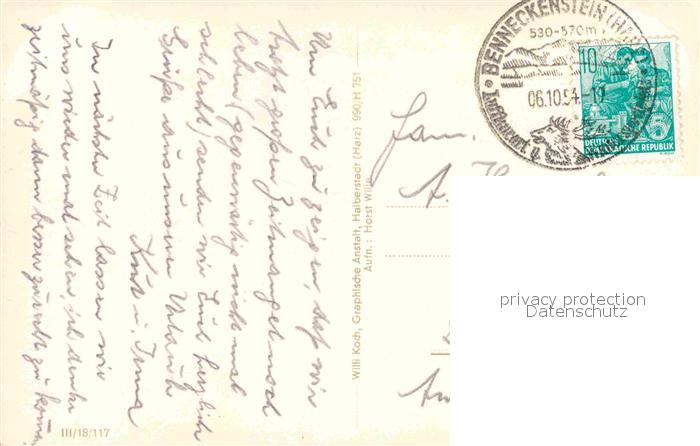 Um Euch zu zeigen, daß wir
trotz großem Zeitmangel noch
leben (gegenwärtig nicht mal
schlecht) senden wir Euch herzliche
Grüße aus unserem Urlaub
Kurt u. Irma
In nächster Zeit lassen wir
uns wieder mal sehen, ich denke
zeitmäßig dann besser zurecht zu komm
III/18/117
Willi Koch, Graphische Anstalt, Halberstadt (Harz) 990/H 751
Aufn.: Horst Wille
BENNECKENSTEIN (HARZ)
530-570m
06.10.54.-1
Luftkurort u.
10
DEUTSCHE
DEMOKRATISCHE REPUBLIK
Fam.
A.
privacy protection
Datenschutz